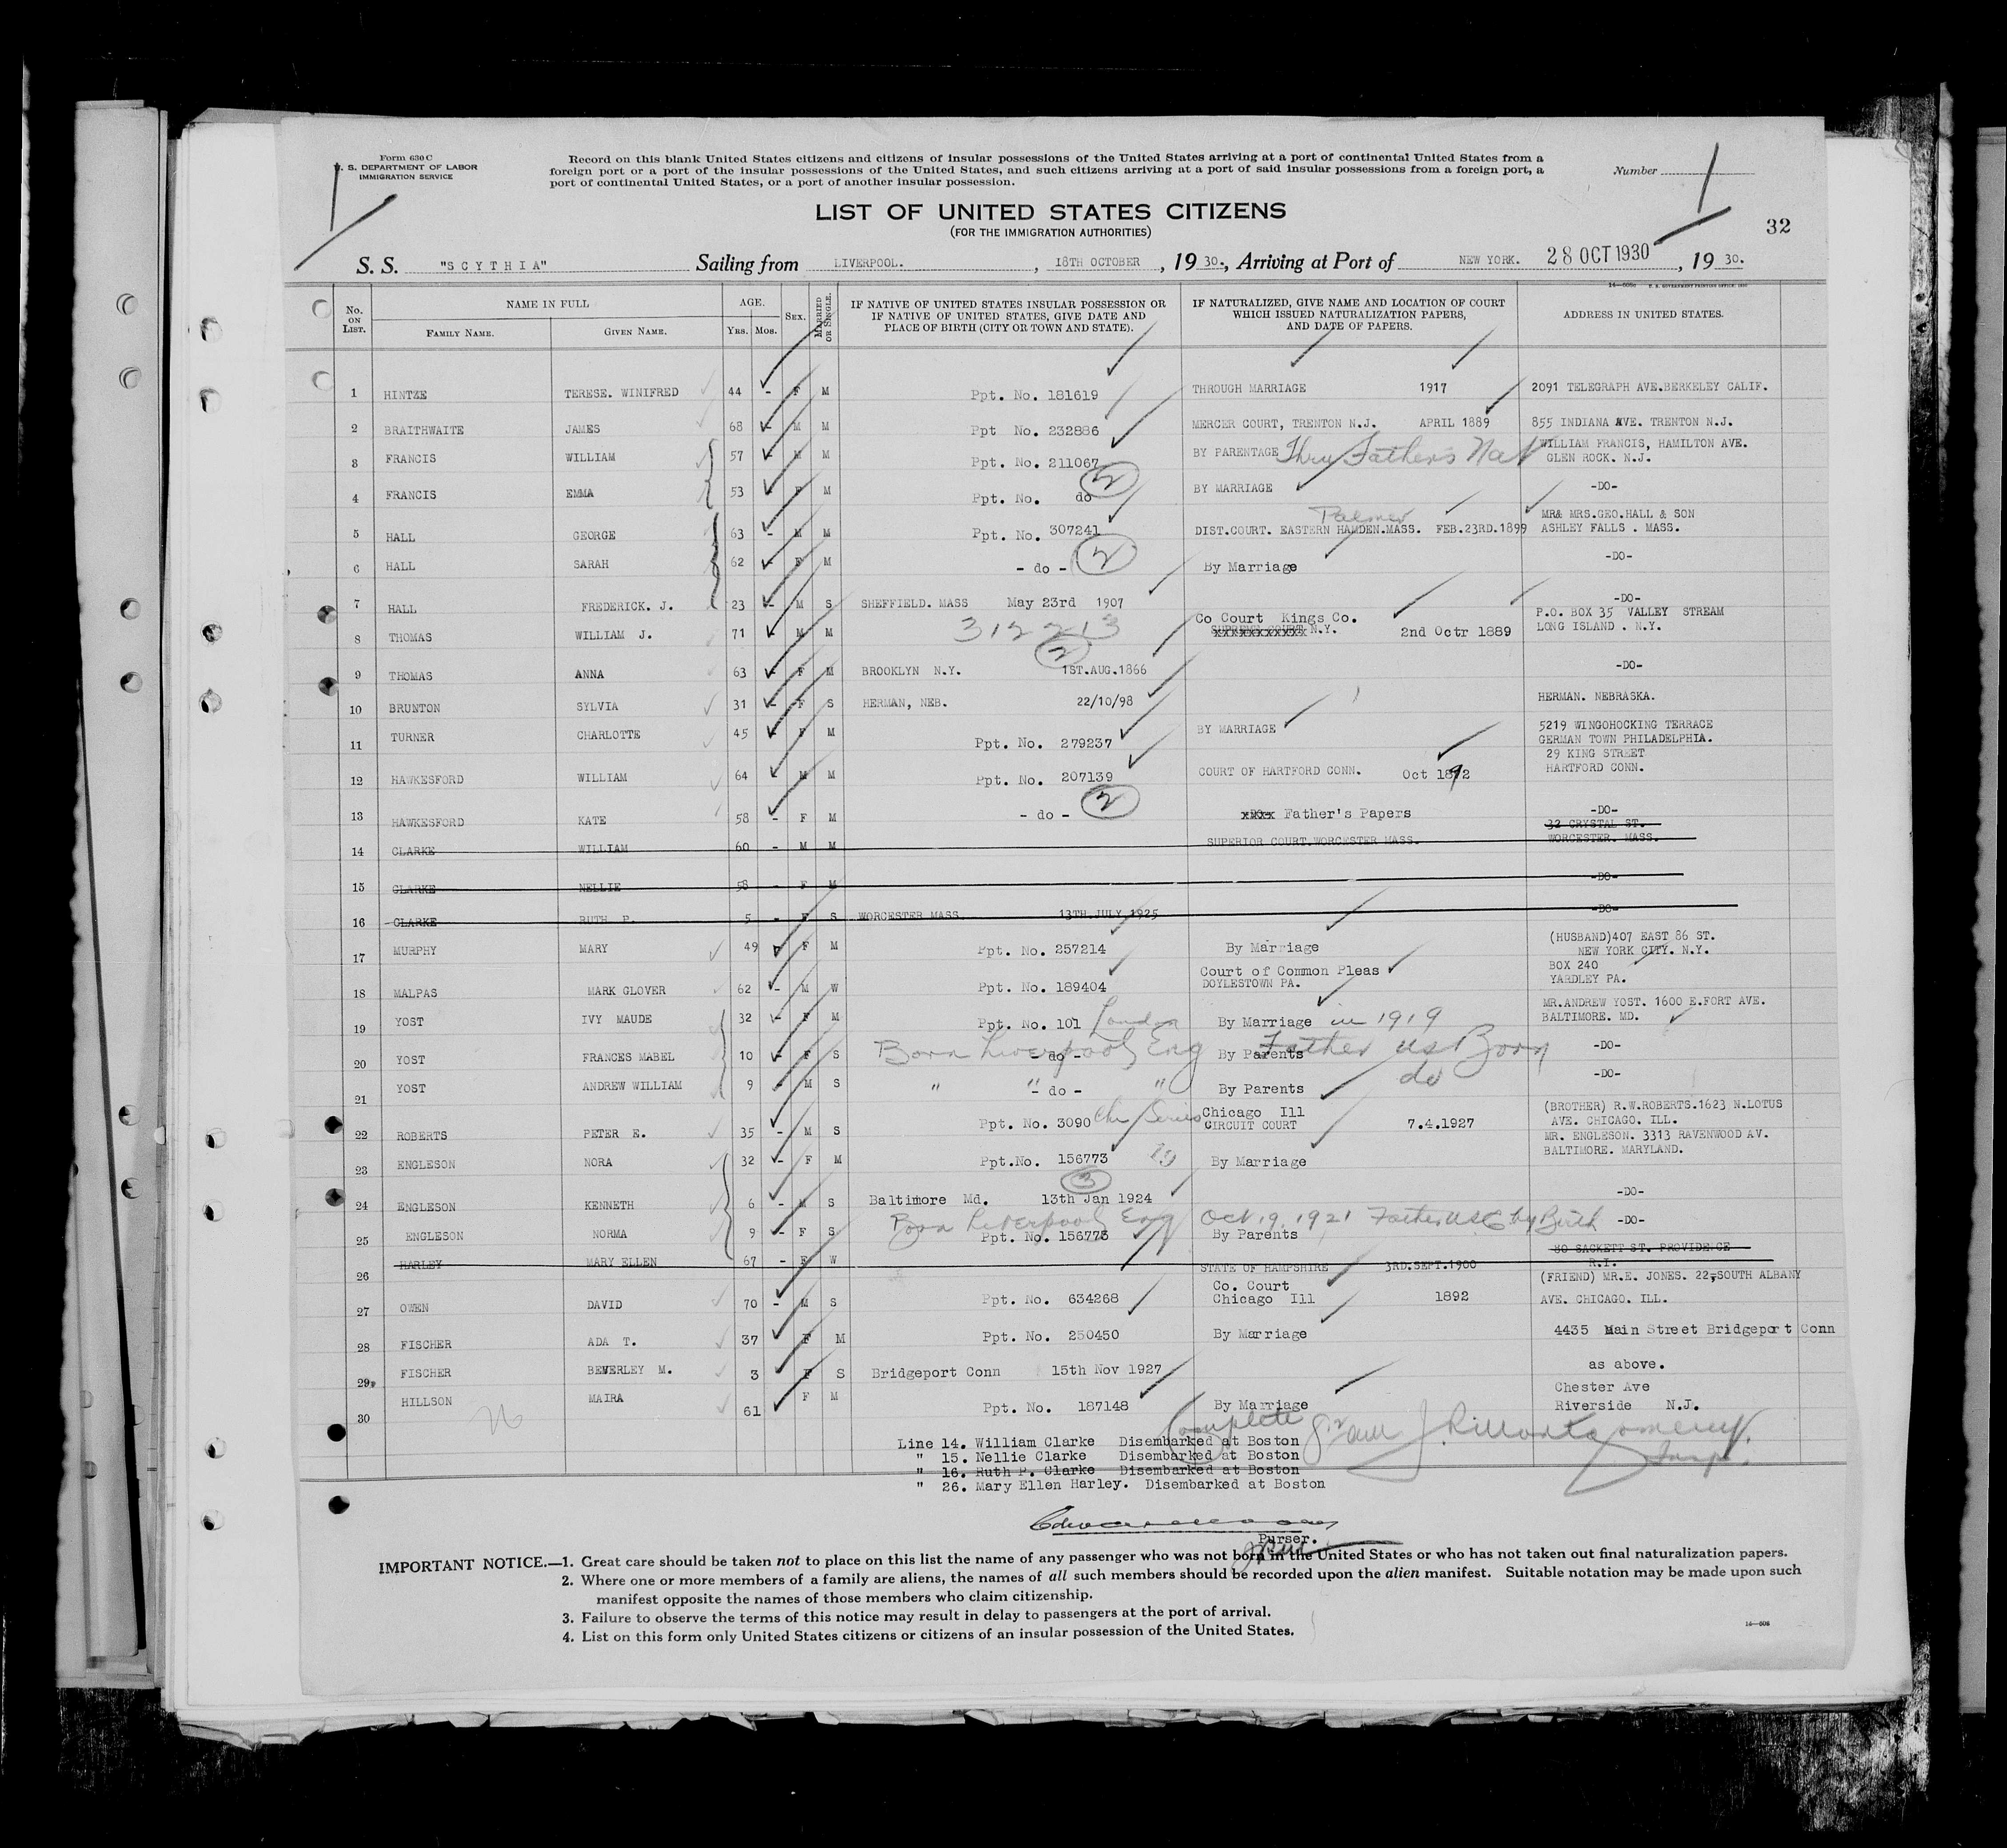 Form 630 C
U. S. DEPARTMENT OF LABOR
IMMIGRATION SERVICE
Record on this blank United States citizens and citizens of insular possessions of the United States arriving at a port of continental United States from a
foreign port or a port of the insular possessions of the United States, and such citizens arriving at a port of said insular possessions from a foreign port, a
port of continental United States, or a port of another insular possession.
Number
LIST OF UNITED STATES CITIZENS
(FOR THE IMMIGRATION AUTHORITIES)
32
S. S. "SCYTHIA" Sailing from LIVERPOOL. , 18TH OCTOBER , 19 30., Arriving at Port of NEW YORK. 28 OCT 1930 , 19 30.
No. ON LIST. NAME IN FULL FAMILY NAME. GIVEN NAME. AGE. YRS. MOS. SEX. MARRIED OR SINGLE. IF NATIVE OF UNITED STATES INSULAR POSSESSION OR IF NATIVE OF UNITED STATES, GIVE DATE AND PLACE OF BIRTH (CITY OR TOWN AND STATE). IF NATURALIZED, GIVE NAME AND LOCATION OF COURT WHICH ISSUED NATURALIZATION PAPERS, AND DATE OF PAPERS. ADDRESS IN UNITED STATES.
1 HINTZE TERESE. WINIFRED 44 - F M Ppt. No. 181619 THROUGH MARRIAGE 1917 2091 TELEGRAPH AVE.BERKELEY CALIF.
2 BRAITHWAITE JAMES 68 - M M Ppt No. 232886 MERCER COURT, TRENTON N.J. APRIL 1889 855 INDIANA AVE. TRENTON N.J.
3 FRANCIS WILLIAM 57 - M M Ppt. No. 211067 BY PARENTAGE Thru Father's Nat WILLIAM FRANCIS, HAMILTON AVE. GLEN ROCK. N.J.
4 FRANCIS EMMA 53 - F M Ppt. No. do 2 BY MARRIAGE -DO-
5 HALL GEORGE 63 - M M Ppt. No. 307241 DIST.COURT. EASTERN HAMDEN.MASS. Palmer FEB.23RD.1899 MR& MRS.GEO.HALL & SON ASHLEY FALLS . MASS.
6 HALL SARAH 62 - F M - do - 2 By Marriage -DO-
7 HALL FREDERICK. J. 23 - M S SHEFFIELD. MASS May 23rd 1907 -DO-
8 THOMAS WILLIAM J. 71 M M 312213 Co Court Kings Co. N.Y. 2nd Octr 1889 P.O. BOX 35 VALLEY STREAM LONG ISLAND . N.Y.
9 THOMAS ANNA 63 - F M BROOKLYN N.Y. 2 1ST.AUG.1866 -DO-
10 BRUNTON SYLVIA 31 - F S HERMAN, NEB. 22/10/98 HERMAN. NEBRASKA.
11 TURNER CHARLOTTE 45 - F M Ppt. No. 279237 BY MARRIAGE 5219 WINGOHOCKING TERRACE GERMAN TOWN PHILADELPHIA.
12 HAWKESFORD WILLIAM 64 - M M Ppt. No. 207139 COURT OF HARTFORD CONN. Oct 1892 29 KING STREET HARTFORD CONN.
13 HAWKESFORD KATE 58 - F M - do - 2 Father's Papers -DO-
14 CLARKE WILLIAM 60 - M M SUPERIOR COURT.WORCESTER MASS. 32 CRYSTAL ST. WORCESTER. MASS.
15 CLARKE NELLIE 58 - F M -DO-
16 CLARKE RUTH P. 5 - F S WORCESTER MASS. 13TH.JULY 1925 -DO-
17 MURPHY MARY 49 F M Ppt. No. 257214 By Marriage (HUSBAND)407 EAST 86 ST. NEW YORK CITY. N.Y.
18 MALPAS MARK GLOVER 62 - M W Ppt. No. 189404 Court of Common Pleas DOYLESTOWN PA. BOX 240 YARDLEY PA.
19 YOST IVY MAUDE 32 - F M Ppt. No. 101 London By Marriage in 1919 MR.ANDREW YOST. 1600 E.FORT AVE. BALTIMORE. MD.
20 YOST FRANCES MABEL 10 - F S Born Liverpool Eng - do - By Parents Father US Born -DO-
21 YOST ANDREW WILLIAM 9 - M S " " - do - " By Parents do -DO-
22 ROBERTS PETER E. 35 - M S Ppt. No. 3090 Series Chicago Ill CIRCUIT COURT 7.4.1927 (BROTHER) R.W.ROBERTS.1623 N.LOTUS AVE. CHICAGO. ILL.
23 ENGLESON NORA 32 - F M Ppt.No. 156773 By Marriage MR. ENGLESON. 3313 RAVENWOOD AV. BALTIMORE. MARYLAND.
24 ENGLESON KENNETH 6 - M S Baltimore Md. 3 13th Jan 1924 -DO-
25 ENGLESON NORMA 9 - F S Born Liverpool Eng Ppt. No. 156773 Oct 19, 1921 Father USC by Birth By Parents -DO-
26 HARLEY MARY ELLEN 67 - F W STATE OF HAMPSHIRE 3RD.SEPT.1900 80 SACKETT ST. PROVIDENCE R.I.
27 OWEN DAVID 70 - M S Ppt. No. 634268 Co. Court Chicago Ill 1892 (FRIEND) MR.E. JONES. 22,SOUTH ALBANY AVE. CHICAGO. ILL.
28 FISCHER ADA T. 37 F M Ppt. No. 250450 By Marriage 4435 Main Street Bridgeport Conn
29 FISCHER BEVERLEY M. 3 F S Bridgeport Conn 15th Nov 1927 as above.
30 HILLSON MAIRA 61 F M Ppt. No. 187148 By Marriage Chester Ave Riverside N.J.
26 Complete
Line 14. William Clarke Disembarked at Boston
" 15. Nellie Clarke Disembarked at Boston
" 16. Ruth P. Clarke Disembarked at Boston
" 26. Mary Ellen Harley. Disembarked at Boston
Insp.
Purser.
IMPORTANT NOTICE.—1. Great care should be taken not to place on this list the name of any passenger who was not born in the United States or who has not taken out final naturalization papers.
2. Where one or more members of a family are aliens, the names of all such members should be recorded upon the alien manifest. Suitable notation may be made upon such
manifest opposite the names of those members who claim citizenship.
3. Failure to observe the terms of this notice may result in delay to passengers at the port of arrival.
4. List on this form only United States citizens or citizens of an insular possession of the United States.
16—608